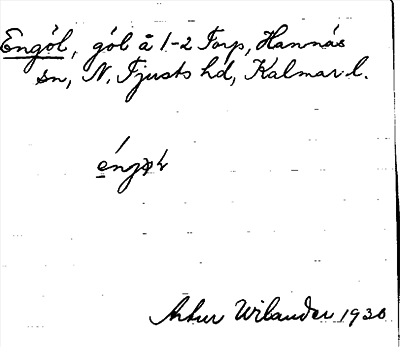 Engöl, göl å 1-2 Torp, Hannäs
sn, N. Tjusts hd, Kalmar l.
Artur Wilander 1930